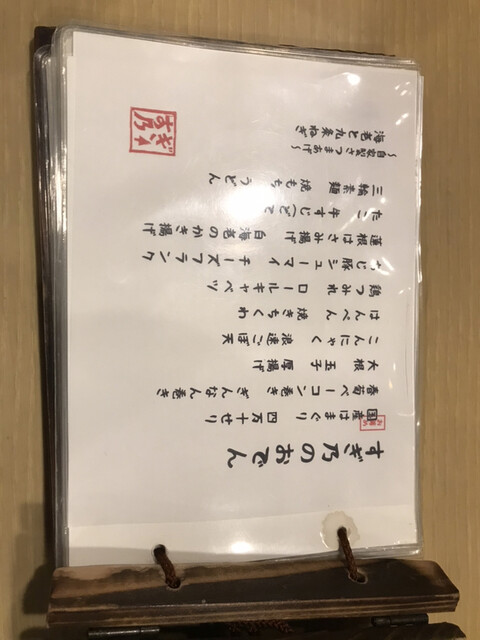 すぎ乃のおでん
国産はまぐり 四万十せり
春菊ベーコン巻き ぎんなん巻き
大根 玉子 厚揚げ
こんにゃく 浪速ごぼ天
はんぺん 焼きちくわ
鶏つみれ ロールキャベツ
あじ豚シューマイ チーズフランク
蓮根はさみ揚げ 白海老のかき揚げ
たこ 牛すじ(どて
三輪素麺 焼もち うどん
～自家製さつまあげ～
海老と九条ねぎ
すぎ乃